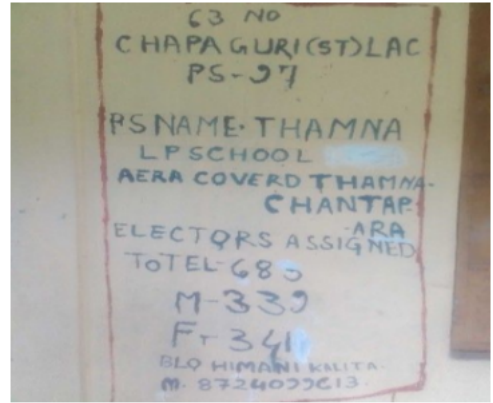 63 NO
CHAPAGURI(ST)LAC
PS-97
PSNAME. THAMNA
LPSCHOOL
AERA COVERD THAMNA-
CHANTAP-
ARA
ELECTORS ASSIGNED
TOTEL-680
M-339
F-341
BLO HIMANI KALITA.
M.